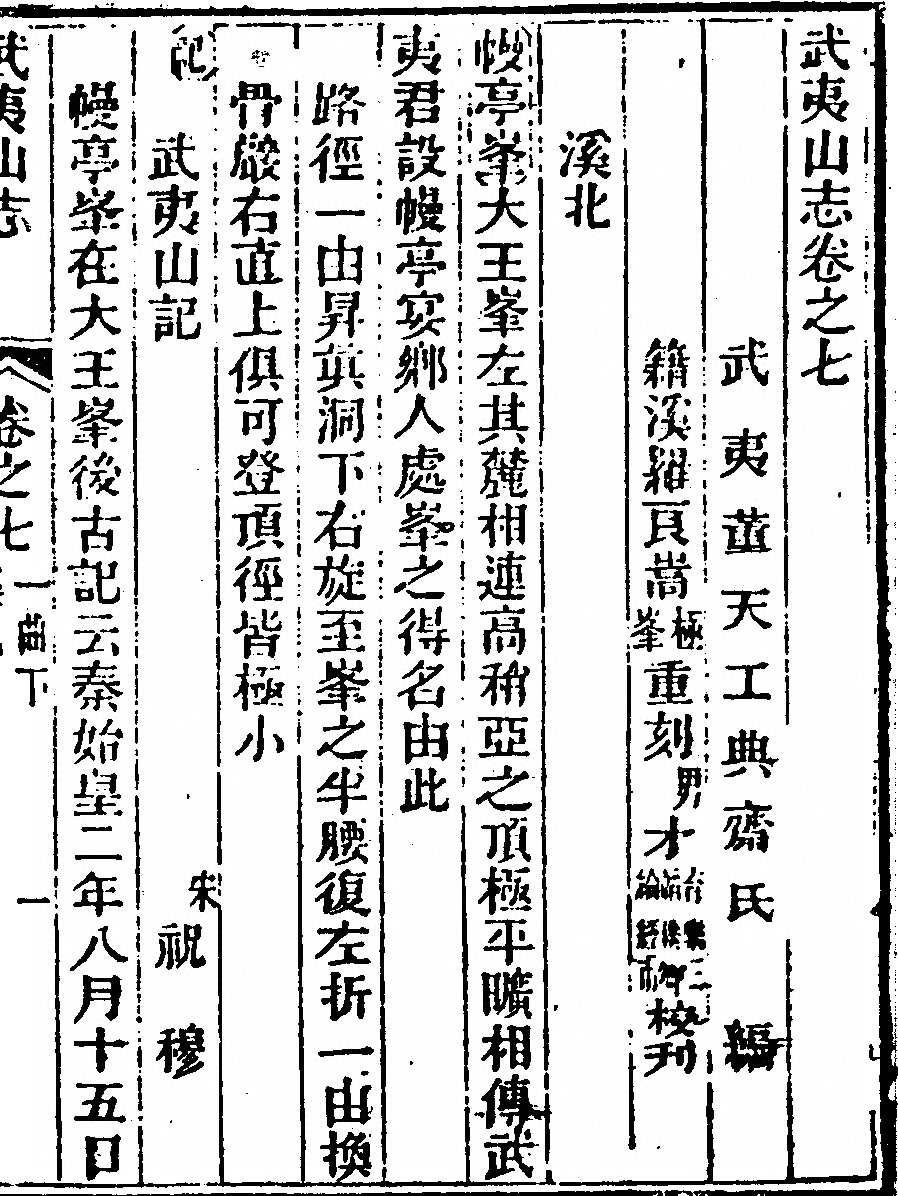 武夷山志卷之七
武夷董天工典齋氏　編
籍溪羅良嵩極峯重刻男才校刊
溪北
幔亭峯大王峯左其麓相連高稍亞之頂極平曠相傳武
夷君設幔亭宴鄉人處峯之得名由此
路徑一由昇真洞下右旋至峯之半腰復左折一由換
骨巖右直上俱可登頂徑皆極小
記　武夷山記　宋祝　穆
幔亭峯在大王峯後古記云秦始皇二年八月十五日
武夷山志　卷之七　一曲下　一